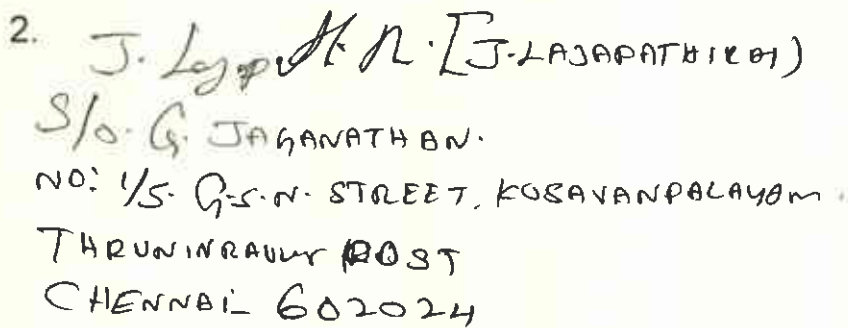 2. J. Lajap [J. LAJAPATHIRAI)
S/o. G. JAGANATHAN.
NO: 1/5. G.S.N. STREET, KOSAVANPALAYAM.
THRUNINRAVUR POST
CHENNAI_ 602024